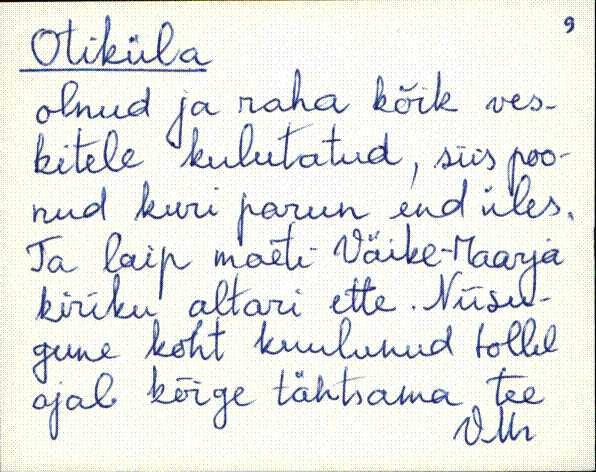 9
Otiküla
olnud ja raha kõik ves-
kitele kulutatud, siis poo-
nud kuri parun end üles.
Ta laip maeti Väike-Maarja
kiriku altari ette. Niisu-
gune koht kuulunud tollel
ajal kõige tähtsama tee